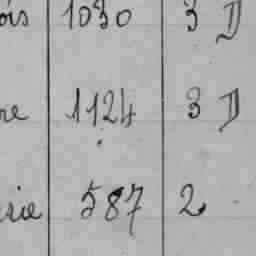 ois 1030 3 D
re 1124 3 D
rie 587 2